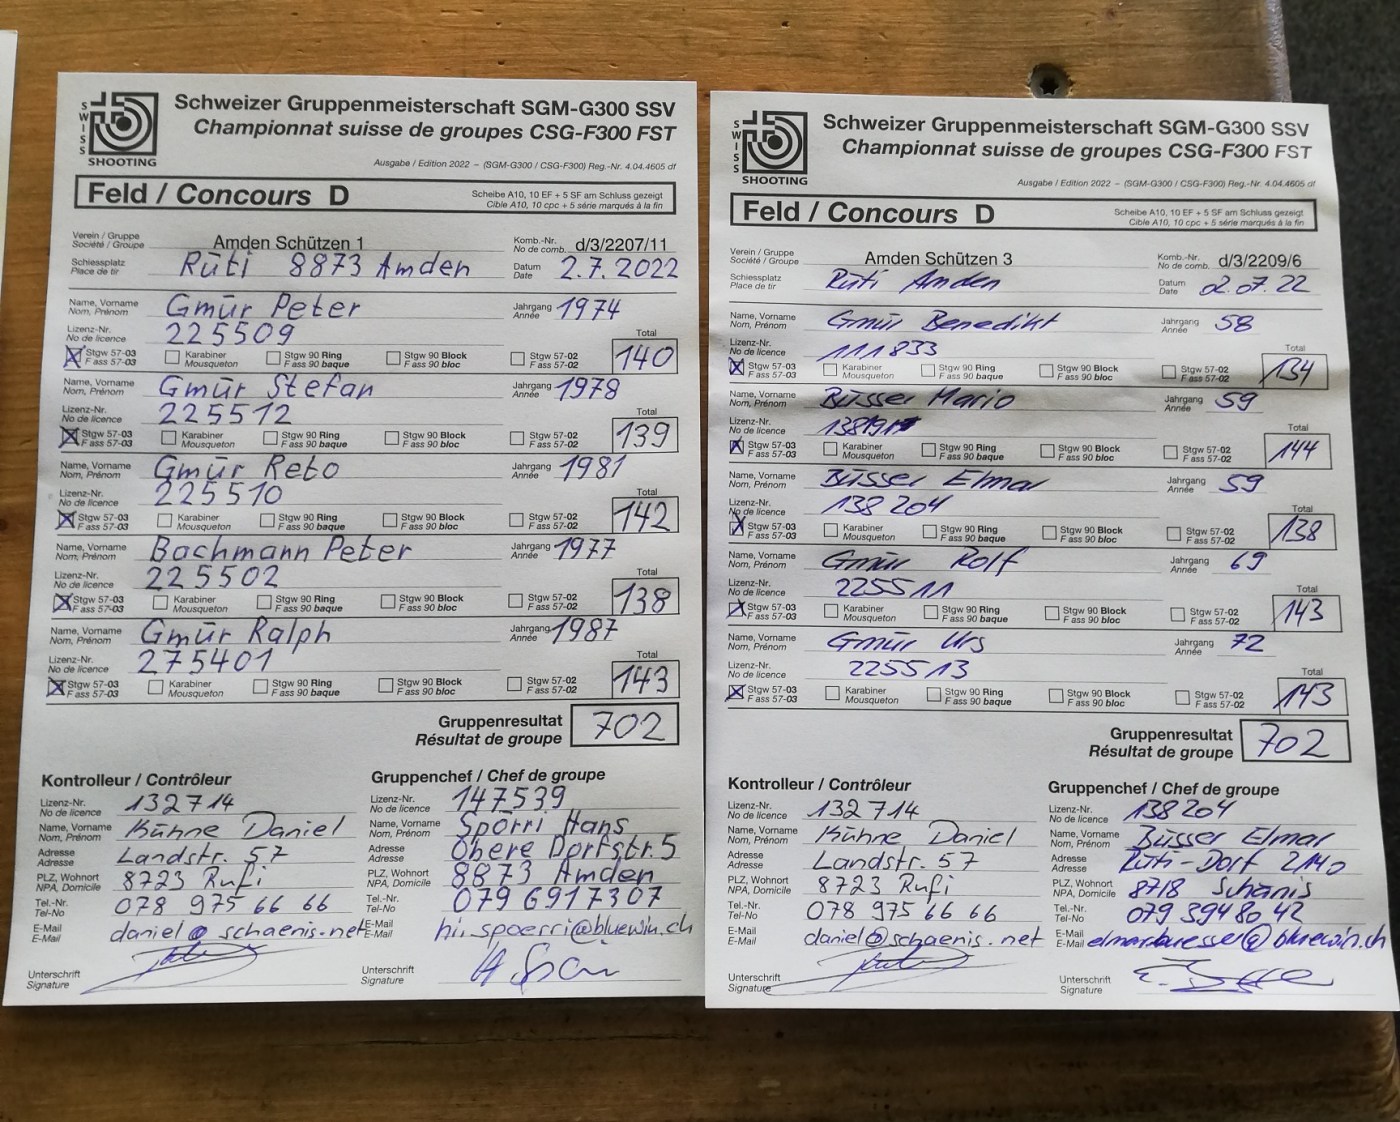 SWISS
SHOOTING
Schweizer Gruppenmeisterschaft SGM-G300 SSV
Championnat suisse de groupes CSG-F300 FST
Ausgabe / Edition 2022 – (SGM-G300 / CSG-F300) Reg.-Nr. 4.04.4605 df
Feld / Concours D
Scheibe A10, 10 EF + 5 SF am Schluss gezeigt
Cible A10, 10 cpc + 5 série marqués à la fin
Verein / Gruppe
Société / Groupe
Amden Schützen 1
Komb.-Nr.
No de comb.
d/3/2207/11
Schiessplatz
Place de tir
Rüti 8873 Amden
Datum
Date
2.7.2022
Name, Vorname
Nom, Prénom
Gmür Peter
Jahrgang
Année
1974
Lizenz-Nr.
No de licence
225509
Total
Stgw 57-03 Karabiner Stgw 90 Ring Stgw 90 Block Stgw 57-02
F ass 57-03 Mousqueton F ass 90 baque F ass 90 bloc F ass 57-02
140
Name, Vorname
Nom, Prénom
Gmür Stefan
Jahrgang
Année
1978
Lizenz-Nr.
No de licence
225512
Total
Stgw 57-03 Karabiner Stgw 90 Ring Stgw 90 Block Stgw 57-02
F ass 57-03 Mousqueton F ass 90 baque F ass 90 bloc F ass 57-02
139
Name, Vorname
Nom, Prénom
Gmür Reto
Jahrgang
Année
1981
Lizenz-Nr.
No de licence
225510
Total
Stgw 57-03 Karabiner Stgw 90 Ring Stgw 90 Block Stgw 57-02
F ass 57-03 Mousqueton F ass 90 baque F ass 90 bloc F ass 57-02
142
Name, Vorname
Nom, Prénom
Bachmann Peter
Jahrgang
Année
1977
Lizenz-Nr.
No de licence
225502
Total
Stgw 57-03 Karabiner Stgw 90 Ring Stgw 90 Block Stgw 57-02
F ass 57-03 Mousqueton F ass 90 baque F ass 90 bloc F ass 57-02
138
Name, Vorname
Nom, Prénom
Gmür Ralph
Jahrgang
Année
1987
Lizenz-Nr.
No de licence
275401
Total
Stgw 57-03 Karabiner Stgw 90 Ring Stgw 90 Block Stgw 57-02
F ass 57-03 Mousqueton F ass 90 baque F ass 90 bloc F ass 57-02
143
Gruppenresultat
Résultat de groupe
702
Kontrolleur / Contrôleur
Lizenz-Nr.
No de licence
132714
Name, Vorname
Nom, Prénom
Kühne Daniel
Adresse
Adresse
Landstr. 57
PLZ, Wohnort
NPA, Domicile
8723 Rufi
Tel.-Nr.
Tel-No
078 975 66 66
E-Mail
E-Mail
daniel@schaenis.net
Unterschrift
Signature
Gruppenchef / Chef de groupe
Lizenz-Nr.
No de licence
147539
Name, Vorname
Nom, Prénom
Spörri Hans
Adresse
Adresse
Obere Dorfstr. 5
PLZ, Wohnort
NPA, Domicile
8873 Amden
Tel.-Nr.
Tel-No
079 6917307
E-Mail
E-Mail
hi.spoerri@bluewin.ch
Unterschrift
Signature
SWISS
SHOOTING
Schweizer Gruppenmeisterschaft SGM-G300 SSV
Championnat suisse de groupes CSG-F300 FST
Ausgabe / Edition 2022 – (SGM-G300 / CSG-F300) Reg.-Nr. 4.04.4605 df
Feld / Concours D
Scheibe A10, 10 EF + 5 SF am Schluss gezeigt
Cible A10, 10 cpc + 5 série marqués à la fin
Verein / Gruppe
Société / Groupe
Amden Schützen 3
Komb.-Nr.
No de comb.
d/3/2209/6
Schiessplatz
Place de tir
Rüti Amden
Datum
Date
02.07.22
Name, Vorname
Nom, Prénom
Gmür Benedikt
Jahrgang
Année
58
Lizenz-Nr.
No de licence
111833
Total
Stgw 57-03 Karabiner Stgw 90 Ring Stgw 90 Block Stgw 57-02
F ass 57-03 Mousqueton F ass 90 baque F ass 90 bloc F ass 57-02
134
Name, Vorname
Nom, Prénom
Büsser Mario
Jahrgang
Année
59
Lizenz-Nr.
No de licence
Total
Stgw 57-03 Karabiner Stgw 90 Ring Stgw 90 Block Stgw 57-02
F ass 57-03 Mousqueton F ass 90 baque F ass 90 bloc F ass 57-02
144
Name, Vorname
Nom, Prénom
Büsser Elmar
Jahrgang
Année
59
Lizenz-Nr.
No de licence
138204
Total
Stgw 57-03 Karabiner Stgw 90 Ring Stgw 90 Block Stgw 57-02
F ass 57-03 Mousqueton F ass 90 baque F ass 90 bloc F ass 57-02
138
Name, Vorname
Nom, Prénom
Gmür Rolf
Jahrgang
Année
69
Lizenz-Nr.
No de licence
225511
Total
Stgw 57-03 Karabiner Stgw 90 Ring Stgw 90 Block Stgw 57-02
F ass 57-03 Mousqueton F ass 90 baque F ass 90 bloc F ass 57-02
143
Name, Vorname
Nom, Prénom
Gmür Urs
Jahrgang
Année
72
Lizenz-Nr.
No de licence
225513
Total
Stgw 57-03 Karabiner Stgw 90 Ring Stgw 90 Block Stgw 57-02
F ass 57-03 Mousqueton F ass 90 baque F ass 90 bloc F ass 57-02
143
Gruppenresultat
Résultat de groupe
702
Kontrolleur / Contrôleur
Lizenz-Nr.
No de licence
132714
Name, Vorname
Nom, Prénom
Kühne Daniel
Adresse
Adresse
Landstr. 57
PLZ, Wohnort
NPA, Domicile
8723 Rufi
Tel.-Nr.
Tel-No
078 975 66 66
E-Mail
E-Mail
daniel@schaenis.net
Unterschrift
Signature
Gruppenchef / Chef de groupe
Lizenz-Nr.
No de licence
138204
Name, Vorname
Nom, Prénom
Büsser Elmar
Adresse
Adresse
Rüti-Dorf 2140
PLZ, Wohnort
NPA, Domicile
8718 Schänis
Tel.-Nr.
Tel-No
079 394 80 42
E-Mail
E-Mail
elmarbuesser@bluewin.ch
Unterschrift
Signature